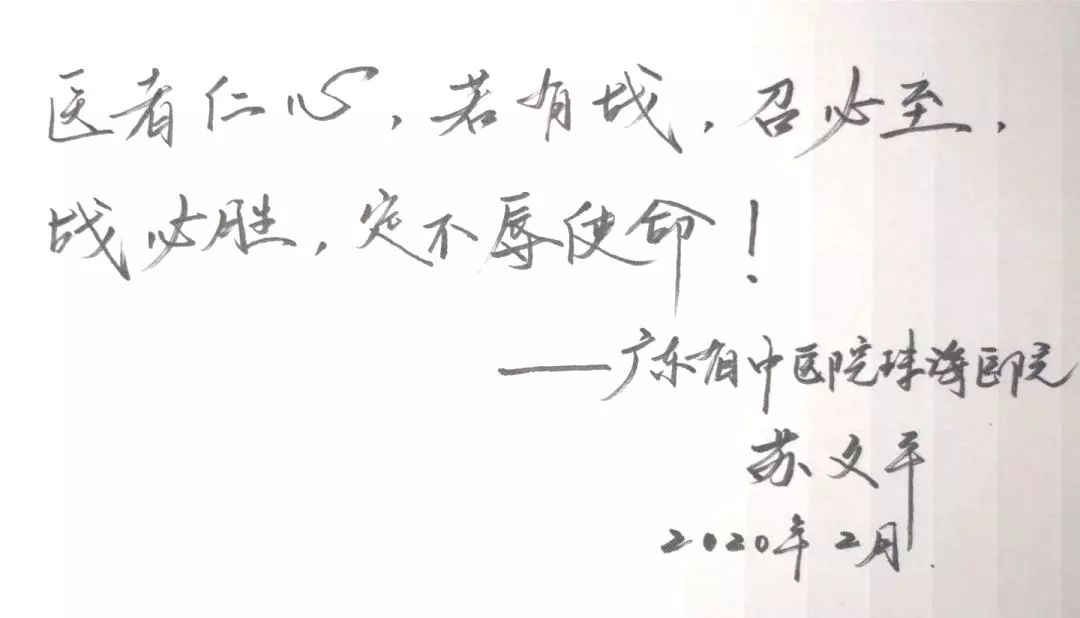 医者仁心,若有战,召必至,
战必胜,定不辱使命!
——广东省中医院珠海医院
苏文平
2020年2月